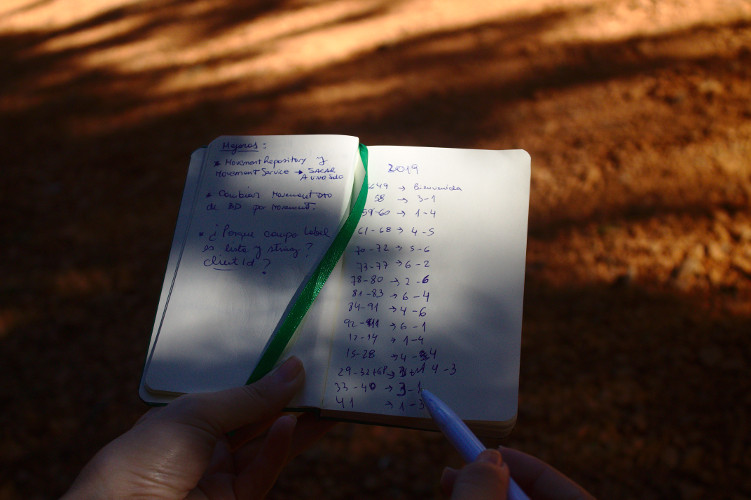 Mejoras:
* Movement Repository y
Movement Service → SACAR
A UNO SOLO
* Cambiar Movement DTO
de BD por Movement.
* ¿Porque campo label
es lista y string?
client Id?
2019
→ Bienvenida
58 → 3-1
59-60 → 1-4
61-68 → 4-5
70-72 → 5-6
73-77 → 6-2
78-80 → 2-6
81-83 → 6-4
84-91 → 4-6
→ 6-1
12-14 → 1-4
15-28 → 4-
4-3
33-40 → 3-1
41 → 1-3